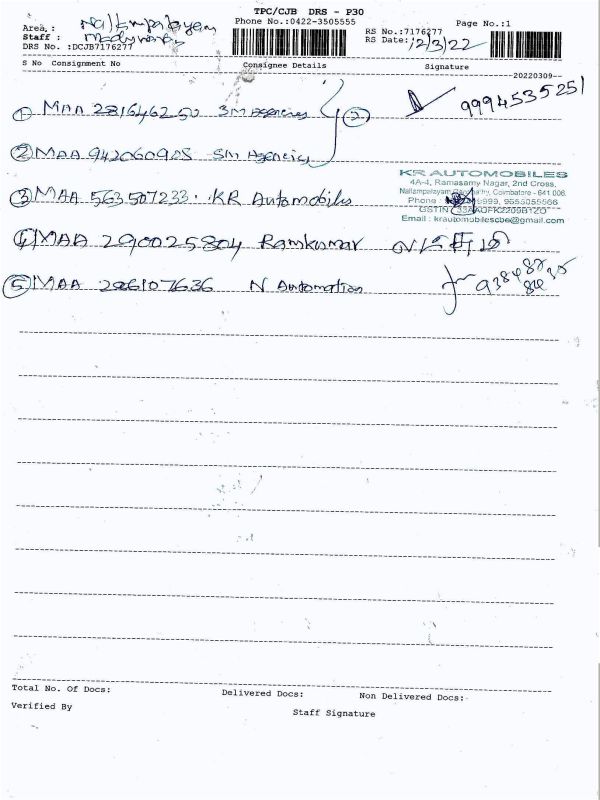 TPC/CJB DRS - P30
Phone No.:0422-3505555
Page No.:1
Area,:
Staff :
DRS No. :DCJB7176277
RS No.:7176277
RS Date: 12/3/22
S No Consignment No Consignee Details Signature
20220309
① MAA 281646250 3M Agencies ②
9994535251
② MAA 942060985 SM Agencies
KR AUTOMOBILES
4A-4, Ramasamy Nagar, 2nd Cross,
Nallampalayam Coimbatore - 641 006.
Phone : 9999, 9655055566
Email : krautomobilescbe@gmail.com
③ MAA 563507233 KR Automobiles
④ MAA 290025804 Ramkumar
⑤ MAA 286107636 N Automation
Total No. Of Docs: Delivered Docs: Non Delivered Docs:
Verified By Staff Signature